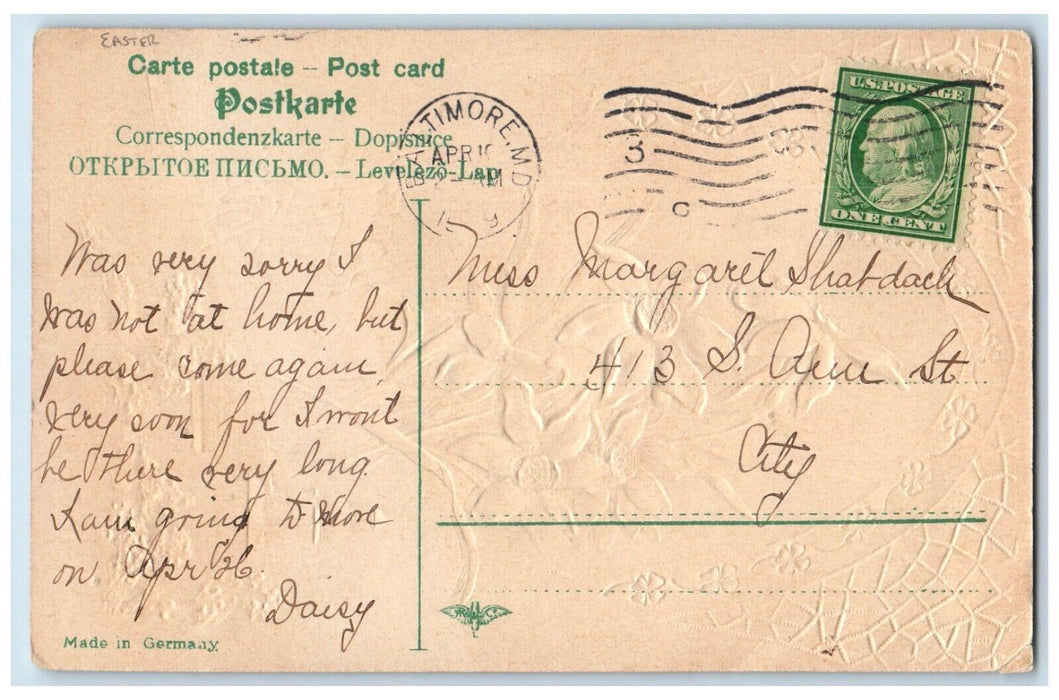 EASTER
Carte postale – Post card
Postkarte
Correspondenzkarte – Dopisnice
ОТКРЫТОЕ ПИСЬМО. – Levelező-Lap
BALTIMORE, MD
APR
U.S. POSTAGE
ONE CENT
3
Was very sorry I
was not at home, but
please come again
very soon for I wont
be there very long
I am going to move
on Apr 26.
Daisy
Miss Margaret Shatdack
413 S. Ann St
City
Made in Germany.